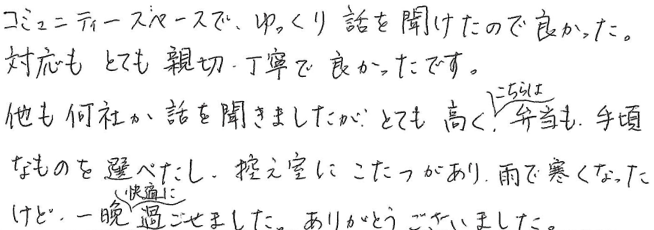 コミュニティースペースで、ゆっくり話を聞けたので良かった。
対応もとても親切・丁寧で良かったです。
他も何社か話を聞きましたが、とても高く、こちらは弁当も、手頃
なものを選べたし、控え室にこたつがあり、雨で寒くなった
けど、一晩快適に過ごせました。ありがとうございました。